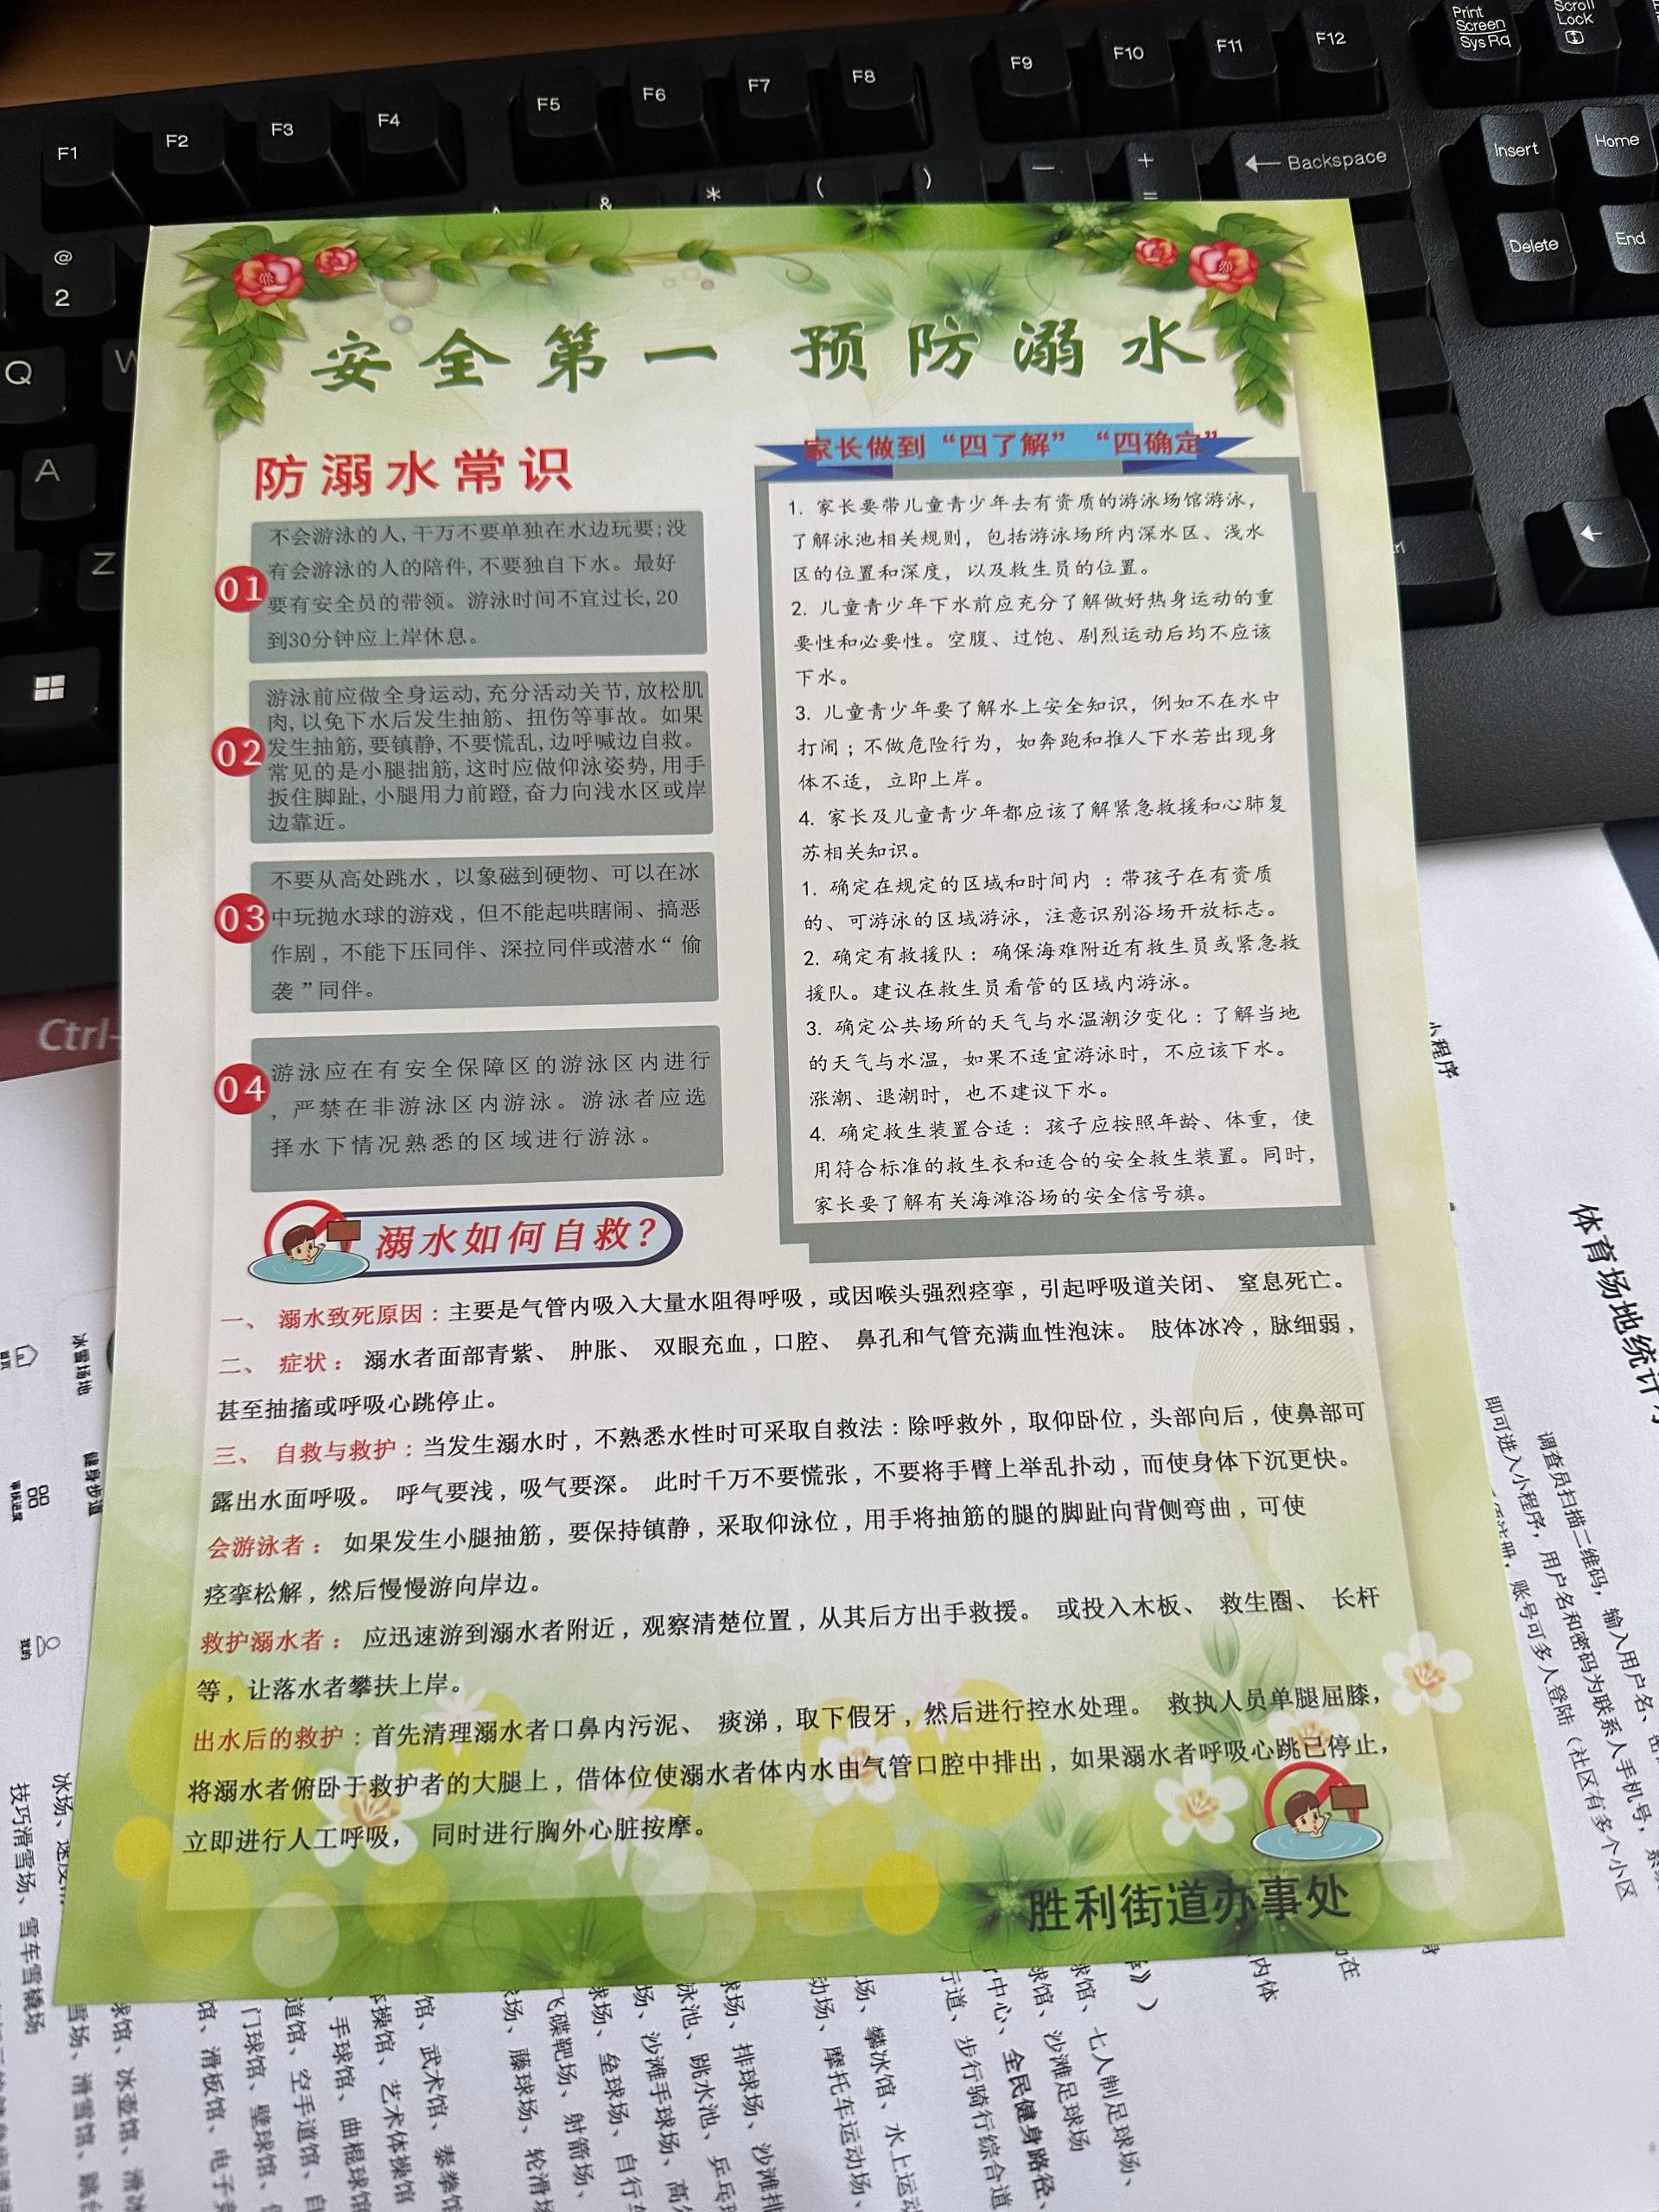 F1
F2
F3
F4
F5
F6
F7
F8
F9
F10
F11
F12
Print
Screen
Sys Rq
Scroll
Lock
@
2
&
*
(
)
—
+
=
← Backspace
Insert
Home
Delete
End
Q
W
A
Z
Ctrl
安全第一 预防溺水
防溺水常识
01
不会游泳的人,千万不要单独在水边玩耍;没
有会游泳的人的陪件,不要独自下水。最好
要有安全员的带领。游泳时间不宜过长,20
到30分钟应上岸休息。
02
游泳前应做全身运动,充分活动关节,放松肌
肉,以免下水后发生抽筋、扭伤等事故。如果
发生抽筋,要镇静,不要慌乱,边呼喊边自救。
常见的是小腿拙筋,这时应做仰泳姿势,用手
扳住脚趾,小腿用力前蹬,奋力向浅水区或岸
边靠近。
03
不要从高处跳水，以象磁到硬物、可以在冰
中玩抛水球的游戏，但不能起哄瞎闹、搞恶
作剧，不能下压同伴、深拉同伴或潜水“偷
袭”同伴。
04
游泳应在有安全保障区的游泳区内进行
，严禁在非游泳区内游泳。游泳者应选
择水下情况熟悉的区域进行游泳。
家长做到“四了解”“四确定”
1. 家长要带儿童青少年去有资质的游泳场馆游泳，
了解泳池相关规则，包括游泳场所内深水区、浅水
区的位置和深度，以及救生员的位置。
2. 儿童青少年下水前应充分了解做好热身运动的重
要性和必要性。空腹、过饱、剧烈运动后均不应该
下水。
3. 儿童青少年要了解水上安全知识，例如不在水中
打闹；不做危险行为，如奔跑和推人下水若出现身
体不适，立即上岸。
4. 家长及儿童青少年都应该了解紧急救援和心肺复
苏相关知识。
1. 确定在规定的区域和时间内：带孩子在有资质
的、可游泳的区域游泳，注意识别浴场开放标志。
2. 确定有救援队：确保海难附近有救生员或紧急救
援队。建议在救生员看管的区域内游泳。
3. 确定公共场所的天气与水温潮汐变化：了解当地
的天气与水温，如果不适宜游泳时，不应该下水。
涨潮、退潮时，也不建议下水。
4. 确定救生装置合适：孩子应按照年龄、体重，使
用符合标准的救生衣和适合的安全救生装置。同时，
家长要了解有关海滩浴场的安全信号旗。
溺水如何自救？
一、 溺水致死原因：主要是气管内吸入大量水阻得呼吸，或因喉头强烈痉挛，引起呼吸道关闭、 窒息死亡。
二、 症状： 溺水者面部青紫、 肿胀、 双眼充血，口腔、 鼻孔和气管充满血性泡沫。 肢体冰冷，脉细弱，
甚至抽搐或呼吸心跳停止。
三、 自救与救护：当发生溺水时，不熟悉水性时可采取自救法：除呼救外，取仰卧位，头部向后，使鼻部可
露出水面呼吸。 呼气要浅，吸气要深。 此时千万不要慌张，不要将手臂上举乱扑动，而使身体下沉更快。
会游泳者： 如果发生小腿抽筋，要保持镇静，采取仰泳位，用手将抽筋的腿的脚趾向背侧弯曲，可使
痉挛松解，然后慢慢游向岸边。
救护溺水者： 应迅速游到溺水者附近，观察清楚位置，从其后方出手救援。 或投入木板、 救生圈、 长杆
等，让落水者攀扶上岸。
出水后的救护：首先清理溺水者口鼻内污泥、 痰涕，取下假牙，然后进行控水处理。 救执人员单腿屈膝，
将溺水者俯卧于救护者的大腿上，借体位使溺水者体内水由气管口腔中排出，如果溺水者呼吸心跳已停止，
立即进行人工呼吸， 同时进行胸外心脏按摩。
胜利街道办事处
小程序
体育场地统计
调查员扫描二维码，输入用户名、
即可进入小程序，用户名和密码为联系人手机号，
账号可多人登陆（社区有多个小区
冰雪场地
健身步道
技巧滑雪场、雪车雪橇场